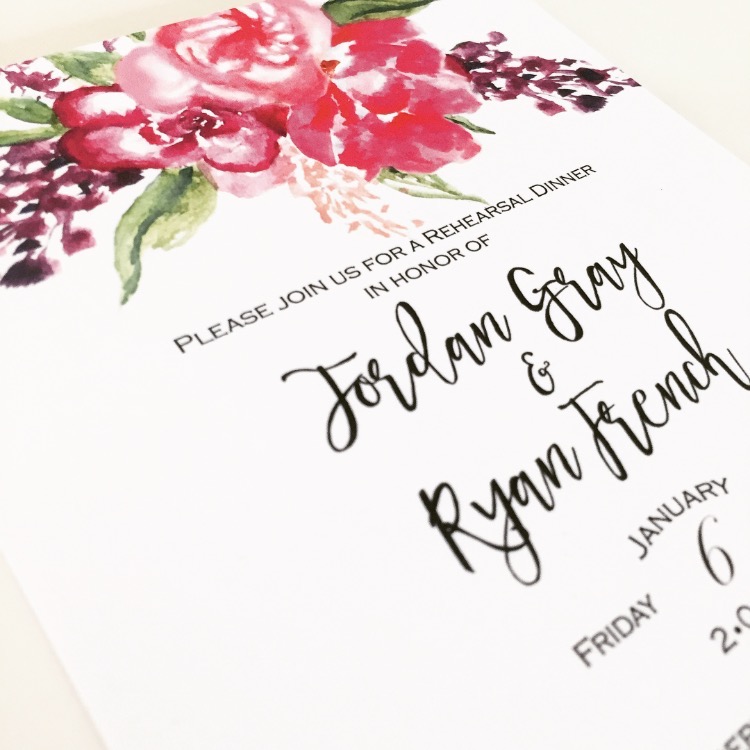 Please join us for a Rehearsal Dinner
in honor of
Jordan Gray
&
Ryan French
January
Friday 6